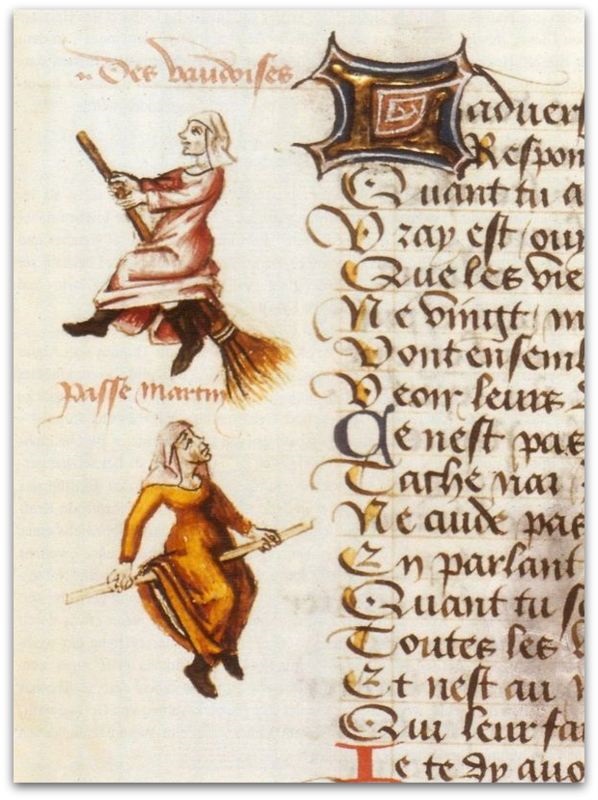 Des vaudoises
passe martin
Ladvers
Respon
Quant tu a
Vray est / ouy
Que les vie
Ne vingt / m
Vont ensemb
Veoir leurs
Ce nest pas
Ne cuide pas
En parlant
Quant tu so
Toutes les
Et nest au
Qui leur fai
Je te dy auo